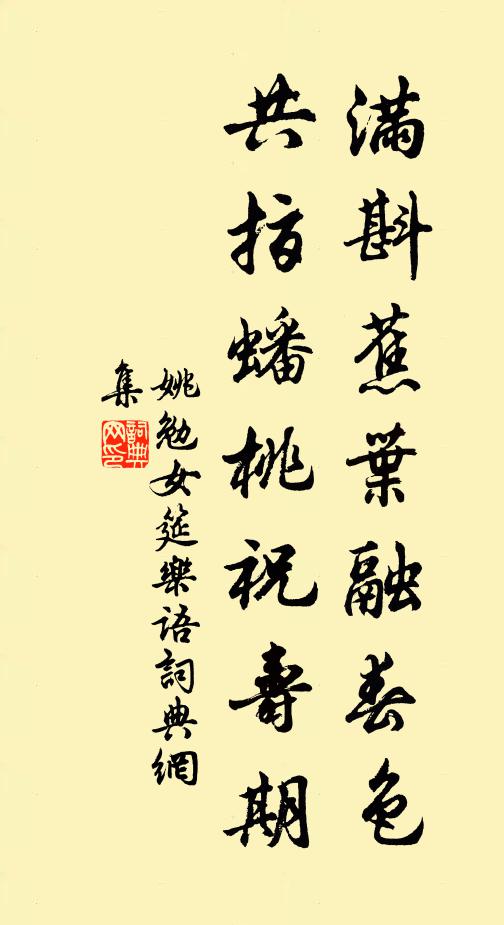 滿斟蕉葉融春色
共指蟠桃祝壽期
姚勉女筵樂语詞典網
集
詞典网印